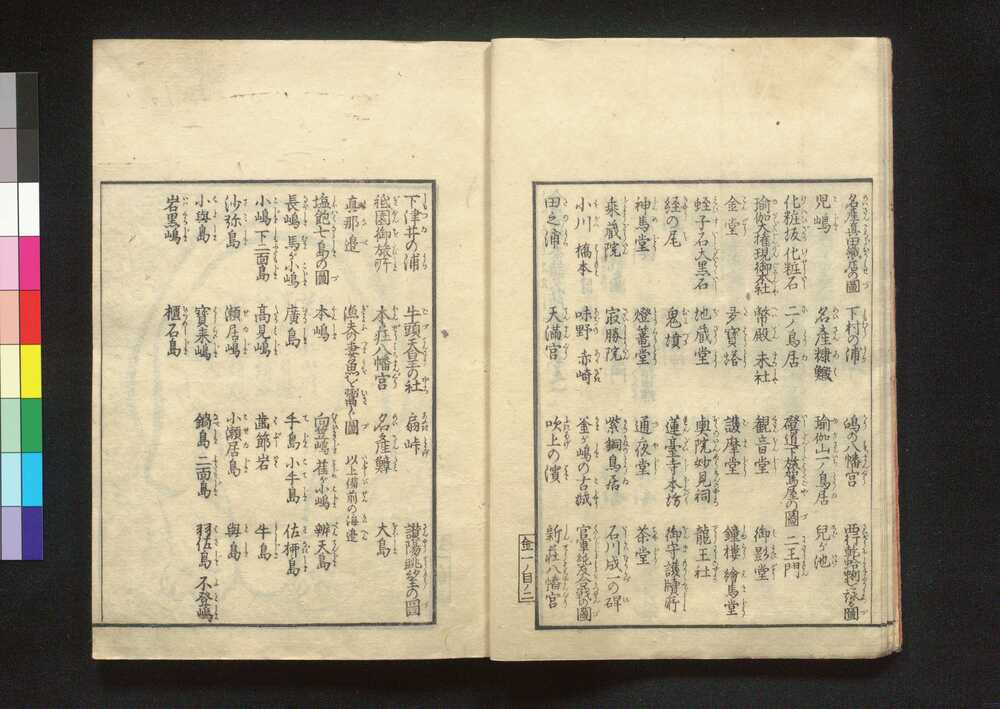 名産真田織店の圖 下村の浦 鴻の八幡宮 西行乾蛤詠の圖
児嶋 名産糠鰶 瑜伽山一ノ鳥居 兒ヶ池
化粧坂 化粧石 二ノ鳥居 磴道下旅篭屋の圖 二王門
瑜伽大権現御本社 幣殿 末社 観音堂 御影堂
金堂 多寶塔 護摩堂 鐘樓 繪馬堂
蛭子石 大黒石 地蔵堂 奥院妙見祠 龍王社
経の尾 鬼墳 蓮臺寺本坊 御守護牘所
神馬堂 燈篭堂 通夜堂 茶堂
乗蔵院 寂勝院 紫銅鳥居 石川成一の碑
小川 橋本 味野 赤崎 釜ヶ嶋の古城 官軍純友合戦の圖
田之浦 天満宮 吹上の濱 新莊八幡宮
金一ノ目ノ二
下津井の浦 牛頭天皇の社 扇峠 讃陽眺望の圖
祗園御旅所 本莊八幡宮 名産鱆 大島
真那邉 漁夫の妻魚を鬻く圖 以上備前の海邉
塩飽七島の圖 本嶋 向笠嶋 辨天島
長嶋 馬ヶ小嶋 廣島 手島 小手島 佐栁島
小嶋 下二面島 高見嶋 歯節岩 牛島
沙弥島 瀬居嶋 小瀬居島 與島
小與島 寳来嶋 鍋島 二面島 羽佐島 不登嶋
岩黒嶋 櫃石島